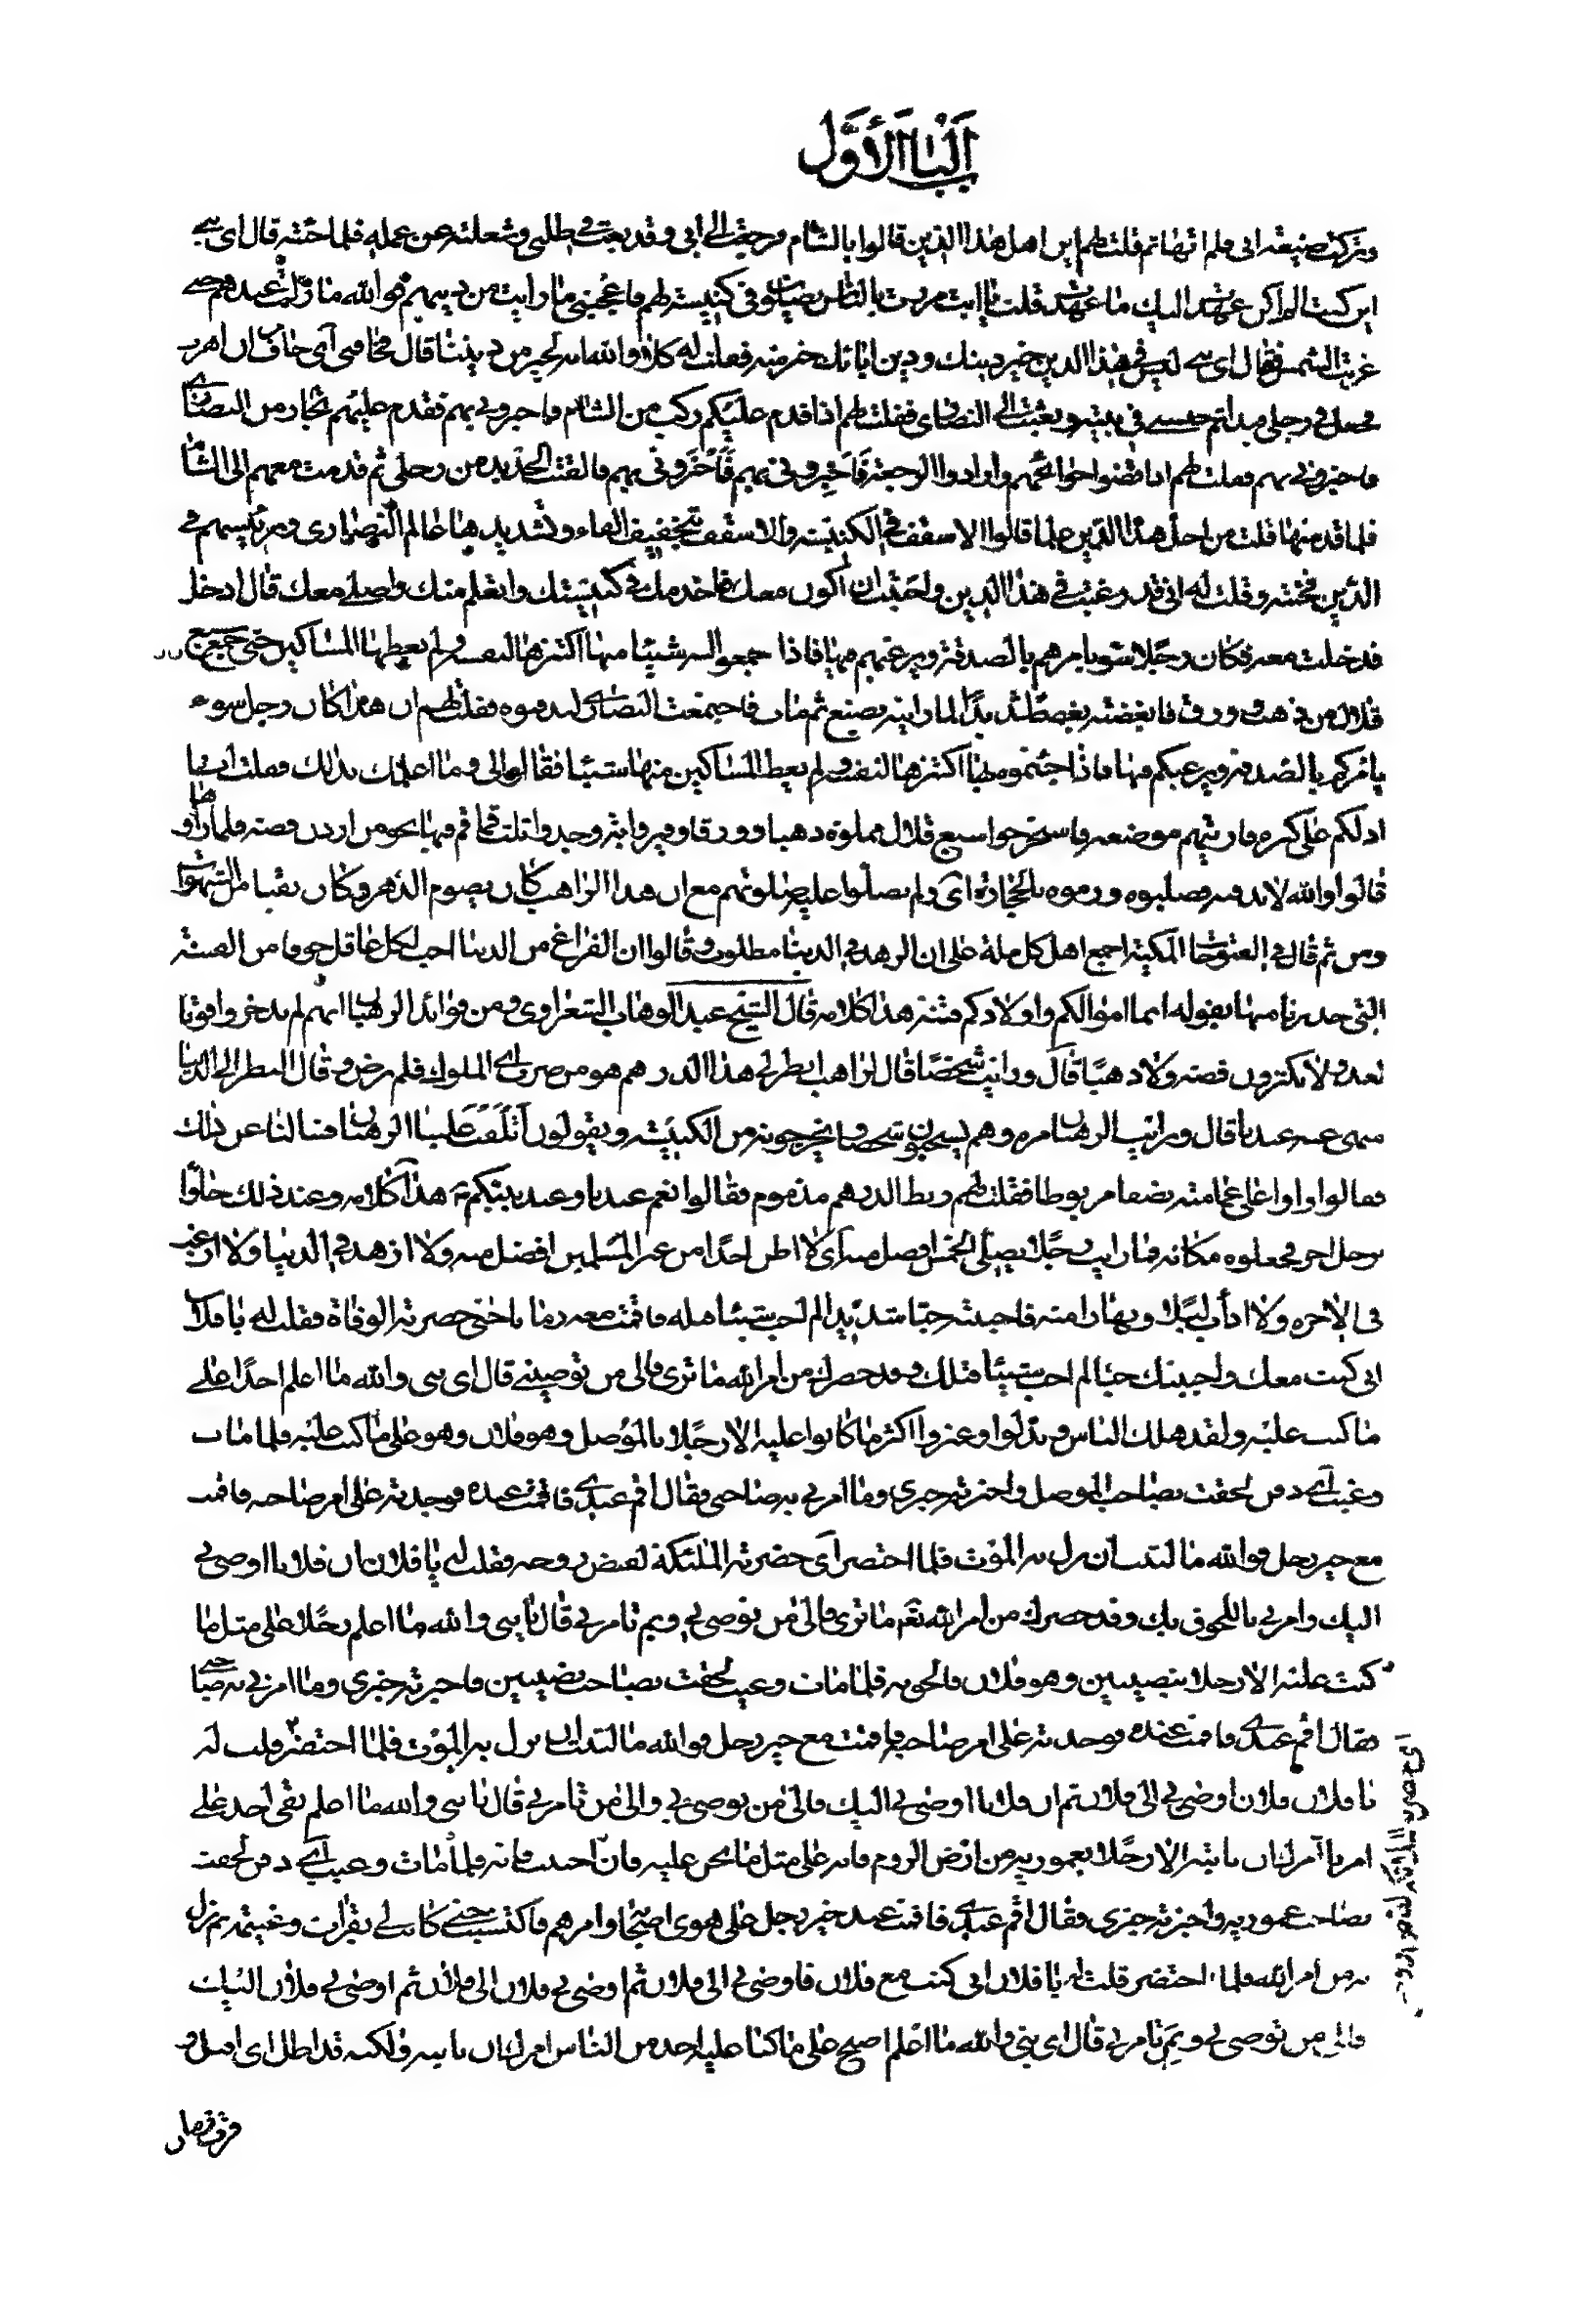 اَلْبَابُ الْأَوَّل
وتركت ضيعة ابي فلم اتها ثم قلت لهم اين اهل هذا الدين قالوا بالشام فرجعت الى ابي وقد بعث في طلبي وشغلته عن عمله فلما جئته قال اى بني
اين كنت الم اكن عهدت اليك ما عهدت قلت يا ابت مررت بالناس يصلون في كنيسة لهم فاعجبني ما رايت من دينهم فوالله ما زلت عندهم حتى
غربت الشمس فقال اى بني ليس في هذا الدين خير دينك ودين ابائك خير منه فقلت له كلا والله انه لخير من ديننا قال فخافني اى خاف ان اهرب
فجعل في رجلي قيدا ثم حبسني في بيته وبعثت الى النصارى فقلت لهم اذا قدم عليكم ركب من الشام فاخبروني بهم فقدم عليهم تجار من النصارى
فاخبروني بهم فقلت لهم اذا قضوا حوائجهم وارادوا الرجعة فَاَخْبِروني بهم فَاَخْبَرُوني بهم فالقيت الحديد من رجلي ثم قدمت معهم الى الشام
فلما قدمتها قلت من اجل هذا الدين علما قالوا الاسقف في الكنيسة والاسقف بتخفيف الفاء وتشديدها عالم النصارى ورئيسهم في
الدين فجئته وقلت له اني قد رغبت في هذا الدين واحببت ان اكون معك فاخدمك في كنيستك واتعلم منك واصلي معك قال ادخل
فدخلت معه فكان رجلا سوء يامرهم بالصدقة ويرغبهم فيها فاذا جمعوا اليه شيئا منها اكتنزها لنفسه ولم يعطها المساكين حتى جمع سبع
قلال من ذهب وورق فابغضته بغضا شديدا لما رايته يصنع ثم مات فاجتمعت النصارى ليدفنوه فقلت لهم ان هذا كان رجل سوء
يامركم بالصدقة ويرغبكم فيها فاذا جئتموه بها اكتنزها لنفسه ولم يعط المساكين منها شيئا فقالوا لي وما اعلمك بذلك فقلت انا
ادلكم على كنزه فاريتهم موضعه فاستخرجوا سبع قلال مملوة ذهبا وورقا وفي رواية وجدوا ثلث قماقم فيها نحو من اردب فضة فلما راوها
قالوا والله لا ندفنه فصلبوه ورموه بالحجارة اى ولم يصلوا عليه صلوتهم مع ان هذا الراهب كان يصوم الدهر وكان نقيا من الشهوات
ومن ثم قال في الفتوحات المكية اجمع اهل كل ملة على ان الزهد في الدنيا مطلوب وقالوا ان الفراغ من الدنيا احب لكل عاقل خوفا من الفتنة
التي حذرنا منها بقوله انما اموالكم واولادكم فتنة هذا كلامه قال الشيخ عبد الوهاب الشعراوي ومن فوائد الرهبان انهم لم يدخروا قوتا
لغد ولا يكنزون فضة ولا ذهبا قال ورايت شخصا قال لراهب انظر لي هذا الدرهم هو من ضرب اى الملوك فلم يرض وقال النظر الى الدنيا
منهي عنه عندنا قال ورايت الرهبان مرة وهم يسحبون شخصا ويخرجونه من الكنيسة ويقولون اَتْلَفْتَ علينا الرهبان فسالنا عن ذلك
فقالوا راوا على عمامته نصفا مربوطا فقلت لهم ربط الدرهم مذموم فقالوا نعم عندنا وعند نبيكم هذا كلامه وعند ذلك جاؤا
برجل اخر فجعلوه مكانه فما رايت رجلا يصلي الخمس افضل منه اى لا اظن احدا من غير المسلمين افضل منه ولا ازهد في الدنيا ولا ارغب
في الاخرة ولا ادأب ليلا ونهارا منه فاحببته حبا شديدا لم احب شيئا مثله فاقمت معه زمانا حتى حضرته الوفاة فقلت له يا فلان
اني كنت معك واحببتك حبا لم احب شيئا قبلك وقد حضرك من امر الله ما ترى فالى من توصيني قال اى بني والله ما اعلم احدا على
ما كنت عليه ولقد هلك الناس وبدلوا وغيروا اكثر ما كانوا عليه الا رجلا بالموصل وهو فلان وهو على ما كنت عليه فلما مات
وغيب اى دفن لحقت بصاحب الموصل واخبرته خبري وما امرني به صاحبي فقال اقم عندي فاقمت عنده فوجدته على امر صاحبه فاقمت
مع خير رجل فوالله ما لبث ان نزل به الموت فلما احتضر اى حضرته الملئكة لقبض روحه فقلت له يا فلان ان فلانا اوصى بي
اليك وامرني باللحوق بك وقد حضرك من امر الله تع ما ترى فالى من توصي بي وبم تامرني قال يا بني والله ما اعلم رجلا على مثل ما
كنت عليه الا رجلا بنصيبين وهو فلان فالحق به فلما مات وغيب لحقت بصاحب نصيبين فاخبرته خبري وما امرني به صاحبي
فقال اقم عندي فاقمت عنده فوجدته على امر صاحبه فاقمت مع خير رجل فوالله ما لبث ان نزل به الموت فلما احتضر قلت له
يا فلان ان فلانا اوصى بي الى فلان ثم ان فلانا اوصى بي اليك فالى من توصي بي والى من تامرني قال يا بني والله ما اعلم بقي احد على
امرنا آمرك ان تاتيه الا رجلا بعمورية من ارض الروم فانه على مثل ما نحن عليه فان احببت فاته فلما مات وغيب اى دفن لحقت
بصاحب عمورية واخبرته خبري فقال اقم عندي فاقمت عند خير رجل على هدى اصحابه وامرهم فاكتسبت حتى كانت لي بقرات وغنيمة ثم نزل
به من امر الله فلما احتضر قلت له يا فلان اني كنت مع فلان فاوصى بي الى فلان ثم اوصى بي فلان الى فلان ثم اوصى بي فلان اليك
فالى من توصي بي وبِمَ تامرني قال اى بني والله ما اعلم اصبح على ما كنا عليه احد من الناس امرك ان تاتيه ولكنه قد اظل اى اقبل و
قرب زمان